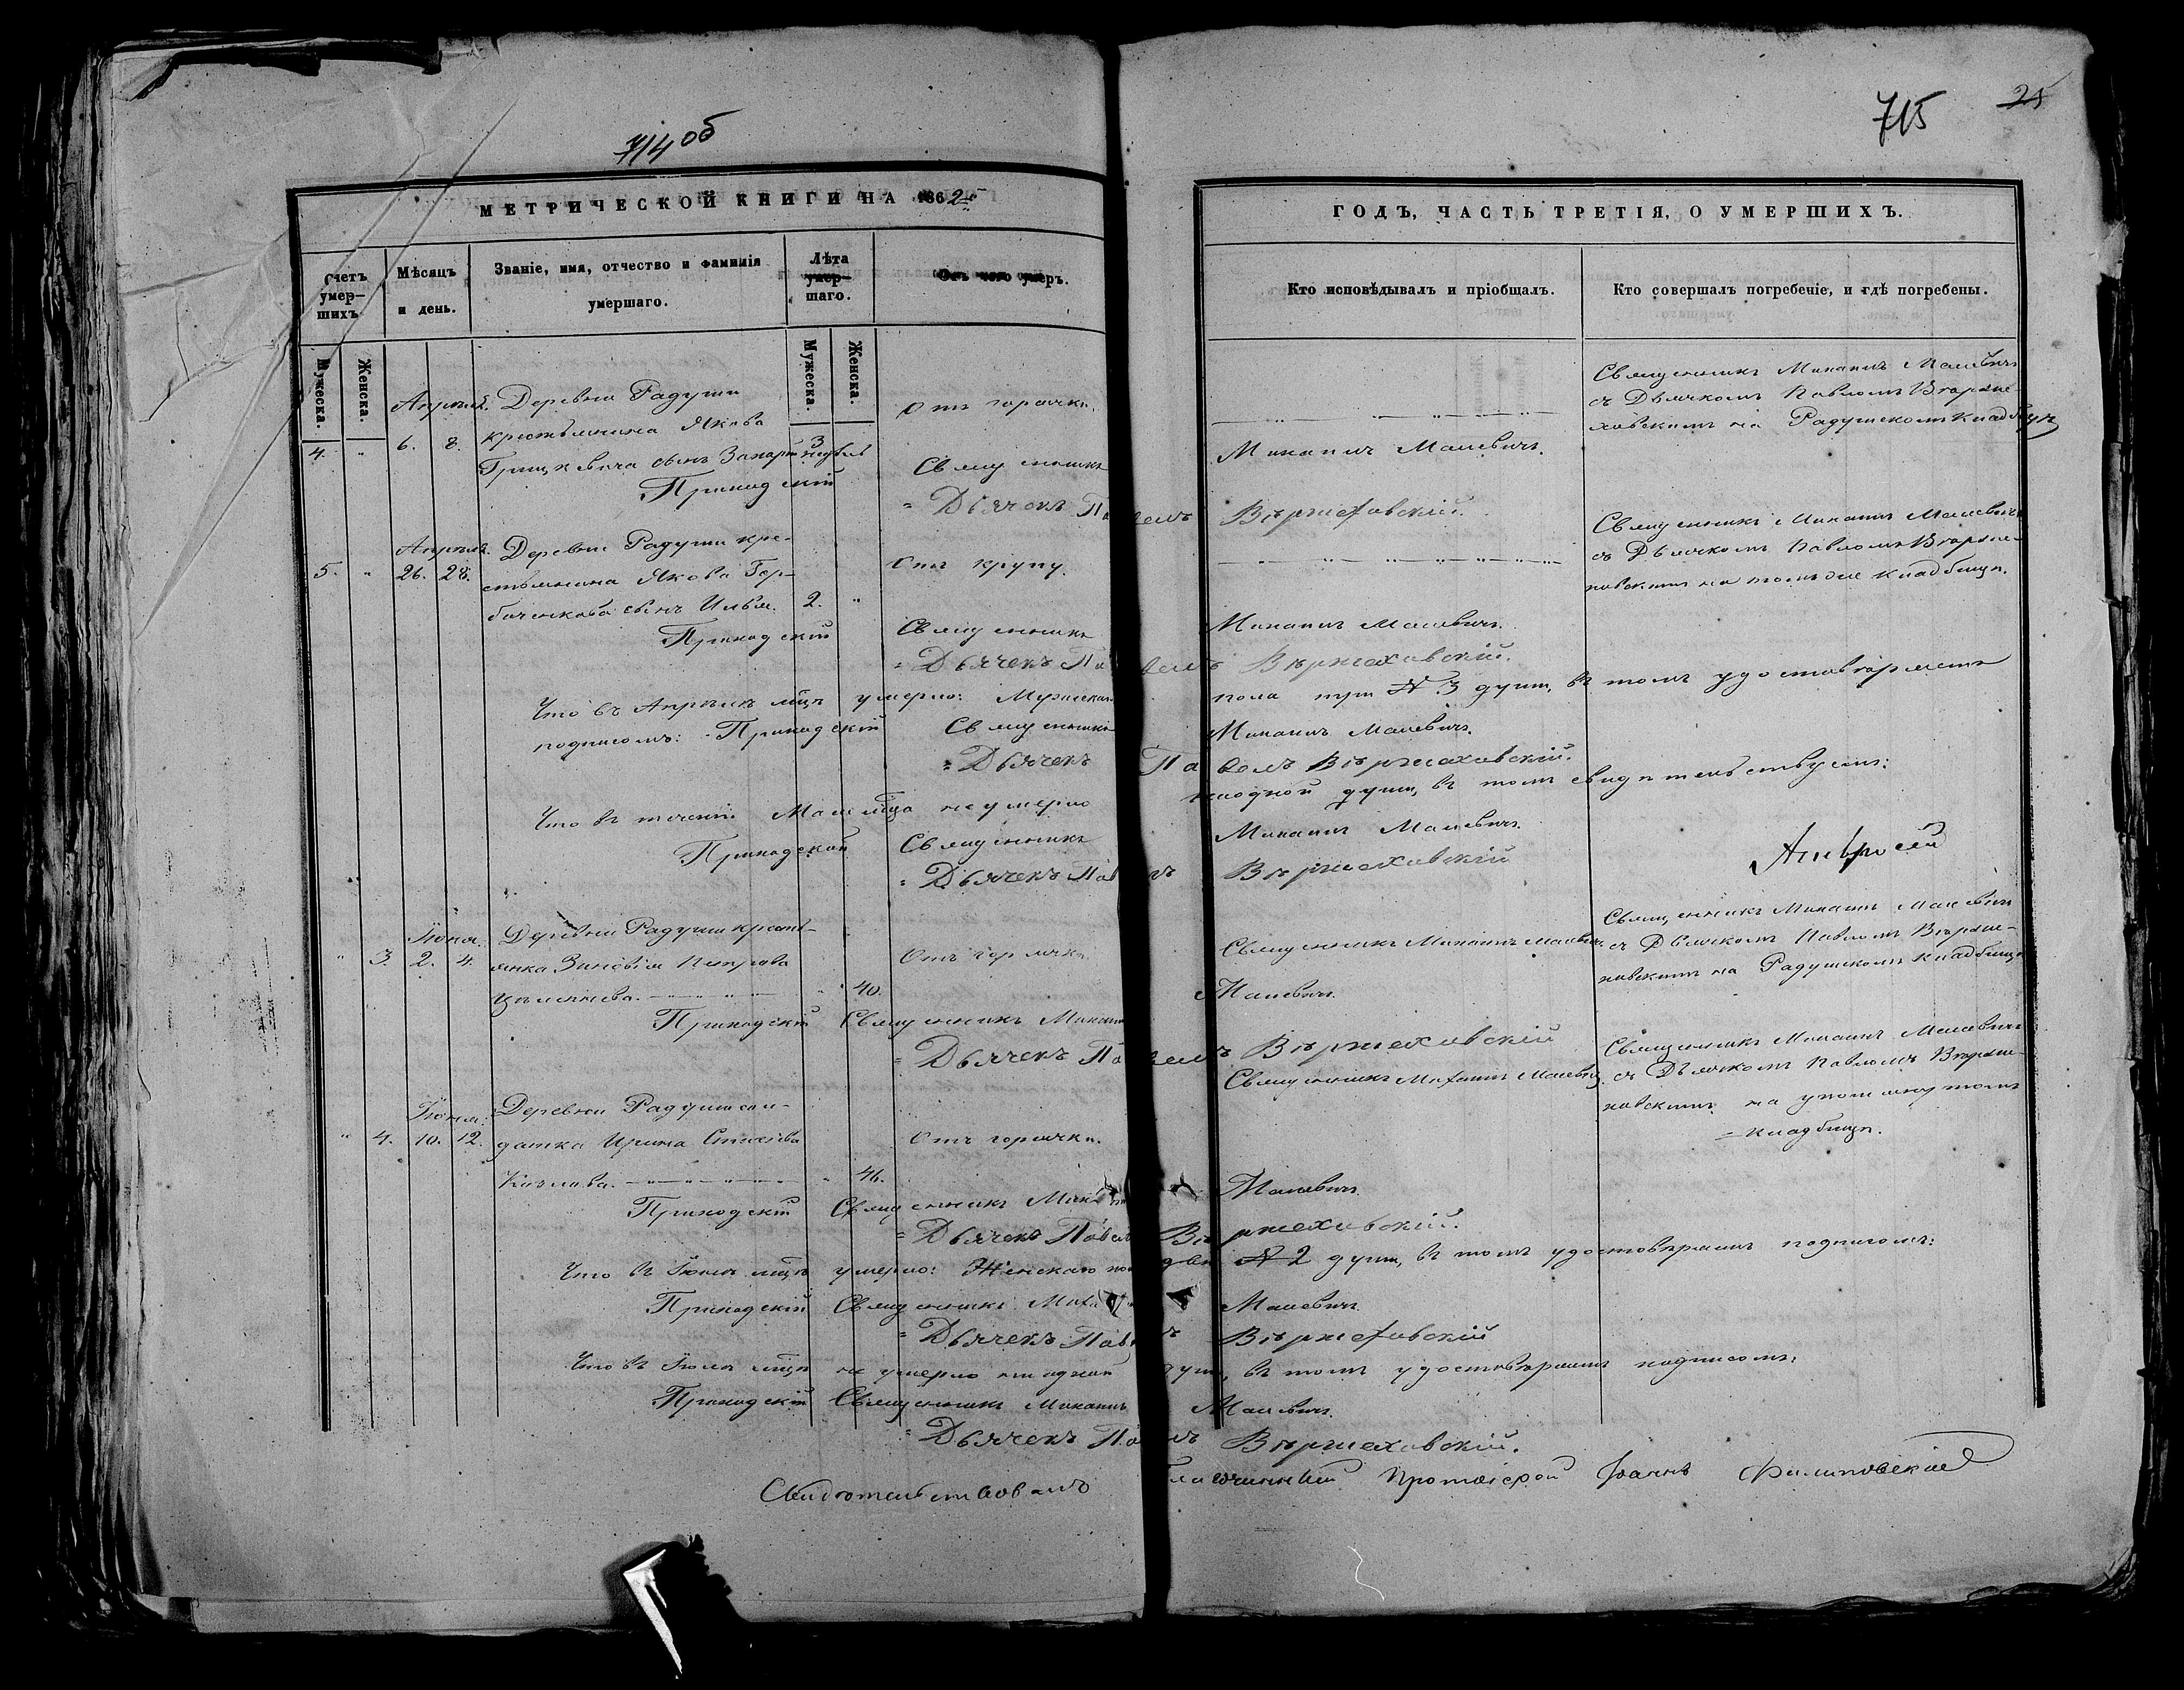 714 об
МЕТРИЧЕСКОЙ КНИГИ НА 1862й
Счетъ умер-шихъ.
Мѣсяцъ и день.
Званіе, имя, отчество и фамилія умершаго.
Лѣта умер-шаго.
Отъ чего умеръ.
Мужеска.
Женска.
Мужеска.
Женска.
Апрѣль. Деревни Радуши
4. " 6. 8. крестьянина Якова 3
Грицкевича сынъ Захарій недѣль
Отъ горячки.
Приходскій Священникъ
Дьячекъ Павелъ
Апрѣль. Деревни Радуши кре-
5. " 26. 28. стьянина Якова Гор-
баченкова сынъ Илья. 2. "
Отъ крупу.
Приходскій Священникъ
Дьячекъ Павелъ
Что въ Апрѣлѣ мцѣ умерло: Мужескаго
подписомъ: Приходскій Священникъ
Дьячекъ
Что въ теченіи Мая мца не умерло
Приходской Священникъ
Дьячекъ Павелъ
Іюня. Деревни Радуши кресть-
" 3. 2. 4. янка Зиновія Петрова
" 40.
Отъ горячки
Приходскій Священникъ Михаилъ
Дьячекъ Павелъ
Іюня. Деревни Радуши сол-
" 4. 10. 12. датка Ирина Стахіева
Козлова. " 46.
Отъ горячки.
Приходскій Священникъ Михаилъ
Дьячекъ Павелъ
Что въ Іюнѣ мцѣ умерло: Женскаго пола двѣ
Приходскій Священникъ Михаилъ
Дьячекъ Павелъ
Что въ Іюлѣ мцѣ не умерло ни одной
Приходскій Священникъ Михаилъ
Дьячекъ Павелъ
Свидѣтельствовалъ
715 25
ГОДЪ, ЧАСТЬ ТРЕТІЯ, О УМЕРШИХЪ.
Кто исповѣдывалъ и пріобщалъ.
Кто совершалъ погребеніе, и гдѣ погребены.
Священникъ Михаилъ Малевичъ
съ Дьячкомъ Павломъ Вѣрже-
ховскимъ на Радушскомъ кладбищѣ
Михаилъ Малевичъ.
Вѣржеховскій.
Священникъ Михаилъ Малевичъ
съ Дьячкомъ Павломъ Вѣрже-
ховскимъ на томъ же кладбищѣ.
Михаилъ Малевичъ.
Вѣржеховскій.
пола три № 3 души, въ томъ удостовѣряемъ
Михаилъ Малевичъ.
Павелъ Вѣржеховскій.
ниодной души, въ томъ свидѣтельствуемъ:
Михаилъ Малевичъ.
Вѣржеховскій
Амвросій
Священникъ Михаилъ Малевичъ
Священникъ Михаилъ Малевичъ
съ Дьячкомъ Павломъ Вѣрже-
ховскимъ на Радушскомъ кладбищѣ
Малевичъ.
Вѣржеховскій
Священникъ Михаилъ Малевичъ
Священникъ Михаилъ Малевичъ
съ Дьячкомъ Павломъ Вѣрже-
ховскимъ на упомянутомъ
кладбищѣ.
Малевичъ.
Вѣржеховскій.
№ 2 души, въ томъ удостовѣряемъ подписомъ:
Малевичъ.
Вѣржеховскій
души, въ томъ удостовѣряемъ подписомъ:
Малевичъ.
Вѣржеховскій.
Благочинный Протоіерей Іоаннъ Филиповскій